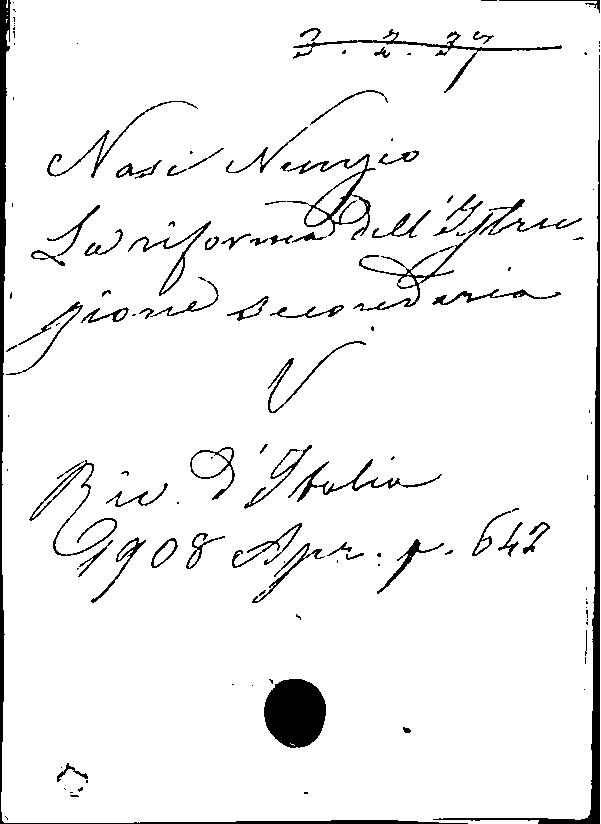 3. 2. 37
Nasi Nunzio
La riforma dell'Istru-
zione secondaria
V
Riv. d'Italia
1908 Apr. p. 642